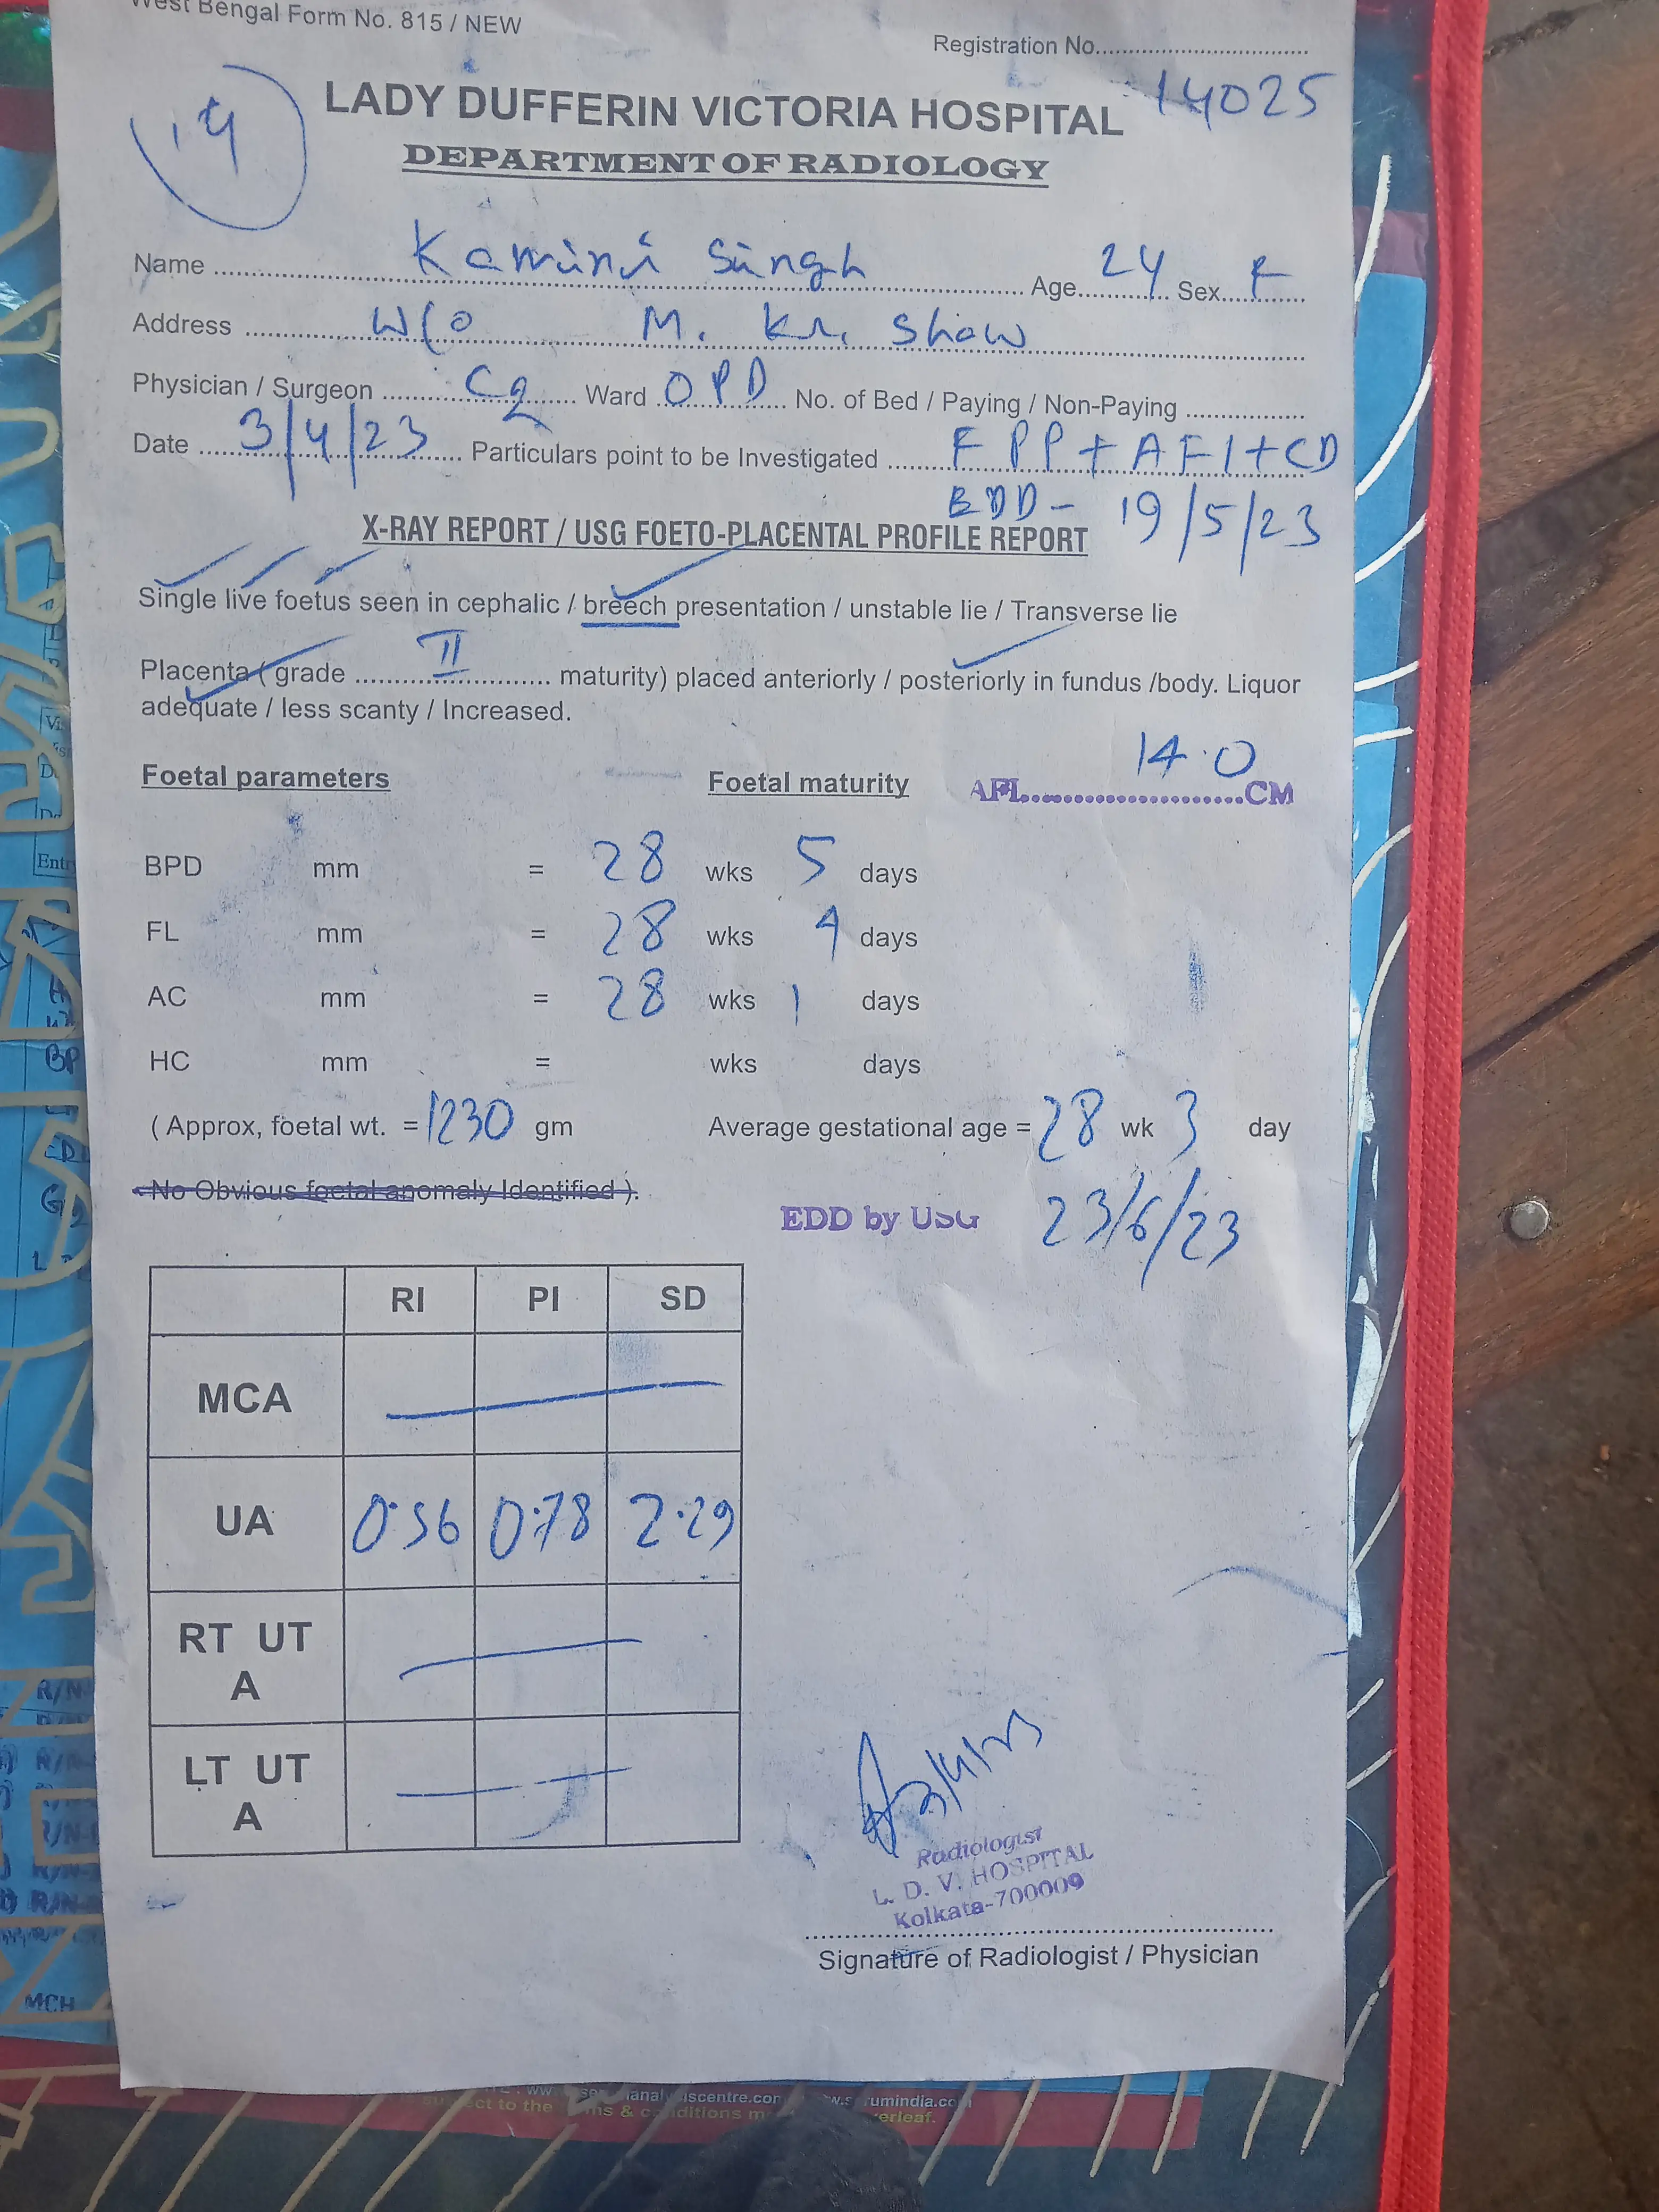 West Bengal Form No. 815 / NEW
Registration No.................................
14025
LADY DUFFERIN VICTORIA HOSPITAL
DEPARTMENT OF RADIOLOGY
Name ........ Kamini Singh ........ Age ..... 24 ..... Sex ..... F .....
Address ........ W/O M. Kr. Show ........
Physician / Surgeon ........ C2 ........ Ward ..... OPD ..... No. of Bed / Paying / Non-Paying ..................
Date ..... 3/4/23 ..... Particulars point to be Investigated ........ FPP + AFI + CD
EDD - 19/5/23
X-RAY REPORT / USG FOETO-PLACENTAL PROFILE REPORT
Single live foetus seen in cephalic / breech presentation / unstable lie / Transverse lie
Placenta ( grade ........ II ........ maturity) placed anteriorly / posteriorly in fundus /body. Liquor
adequate / less scanty / Increased.
Foetal parameters Foetal maturity AFI ........ 14.0 ........ CM
BPD mm = 28 wks 5 days
FL mm = 28 wks 4 days
AC mm = 28 wks 1 days
HC mm = wks days
( Approx, foetal wt. = 1230 gm Average gestational age = 28 wk 3 day
No Obvious foetal anomaly Identified ).
EDD by USG 23/6/23
RI PI SD
MCA
UA 0.56 0.78 2.29
RT UT
A
LT UT
A
3/4/23
Radiologist
L. D. V. HOSPITAL
Kolkata-700009
Signature of Radiologist / Physician
Entr
BP
R/N
R/N
R/N
MCH